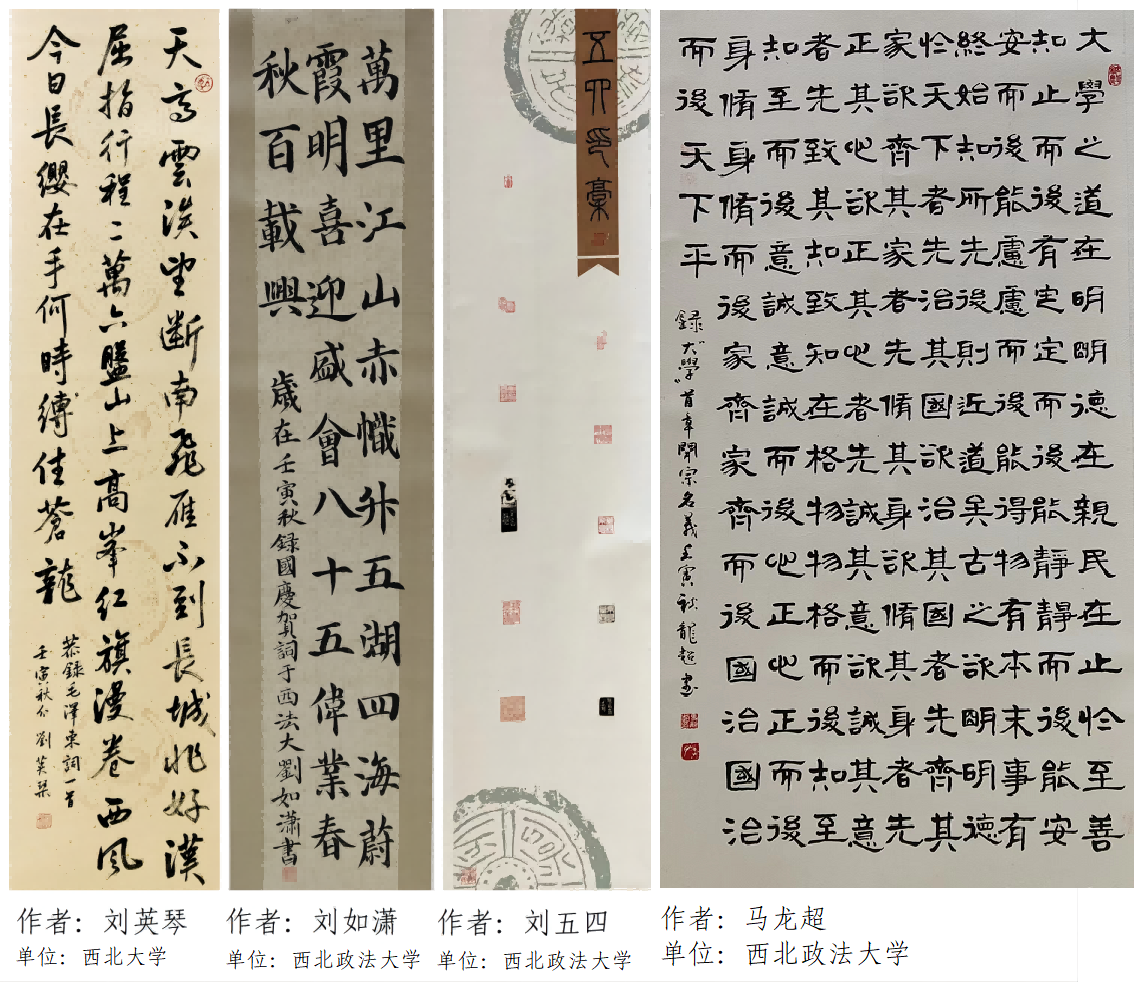 天高雲淡望斷南飛雁不到長城非好漢
屈指行程二萬六盤山上高峯紅旗漫卷西風
今日長纓在手何時縛住蒼龍
恭錄毛澤東詞一首
壬寅秋分劉英琴
作者：刘英琴
单位：西北大学
萬里江山赤幟升五湖四海蔚
霞明喜迎盛會八十五偉業春
秋百載興
歲在壬寅秋録國慶賀詞于西法大劉如瀟書
作者：刘如潇
单位：西北政法大学
五四印稾
作者：刘五四
单位：西北政法大学
大學之道在明明德在親民在止於至善
知止而後有定定而後能靜靜而後能安
安而後能慮慮而後能得物有本末事有
終始知所先後則近道矣古之欲明明德
於天下者先治其國欲治其國者先齊其
家欲齊其家者先脩其身欲脩其身者先
正其心欲正其心者先誠其意欲誠其意
者先致其知致知在格物物格而後知至
知至而後意誠意誠而後心正心正而後
身脩身脩而後家齊家齊而後國治國治
而後天下平
録“大學”首章開宗名義壬寅秋龍超書
作者：马龙超
单位：西北政法大学